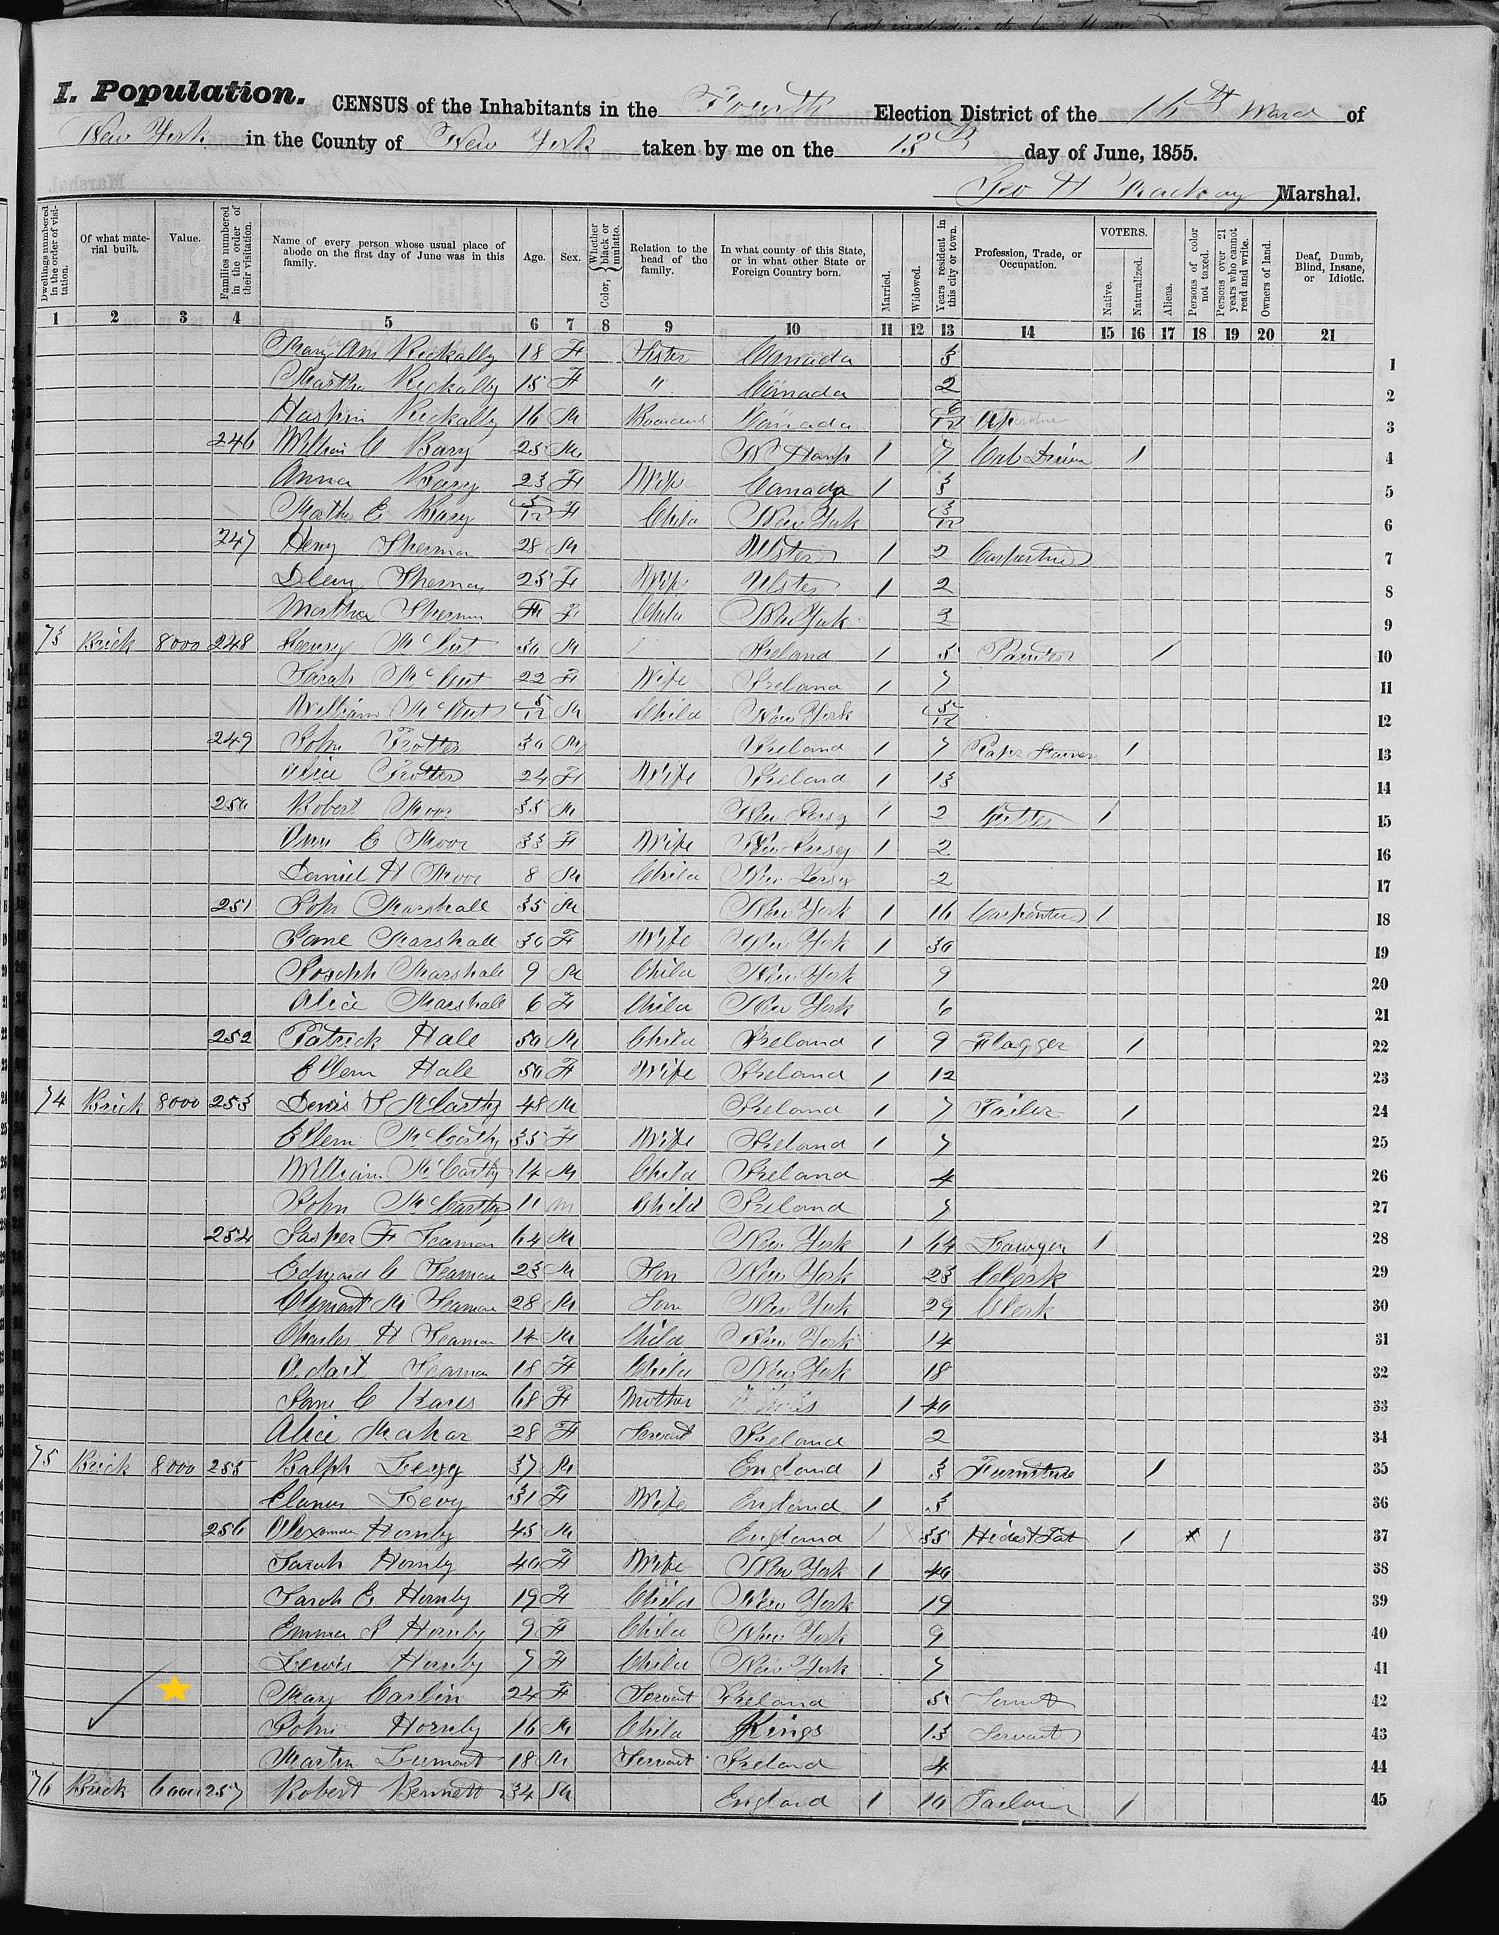 I. Population. CENSUS of the Inhabitants in the Fourth Election District of the 16th Ward of
New York in the County of New York taken by me on the 13th day of June, 1855.
Geo H Marshal.
Dwellings numbered in the order of visitation.
Of what material built.
Value.
Families numbered in the order of their visitation.
Name of every person whose usual place of abode on the first day of June was in this family.
Age.
Sex.
Color, Whether black or mulatto.
Relation to the head of the family.
In what county of this State, or in what other State or Foreign Country born.
Married.
Widowed.
Years resident in this city or town.
Profession, Trade, or Occupation.
VOTERS.
Native.
Naturalized.
Aliens.
Persons of color not taxed.
Persons over 21 years who cannot read and write.
Owners of land.
Deaf, Dumb, Blind, Insane, or Idiotic.
1 2 3 4 5 6 7 8 9 10 11 12 13 14 15 16 17 18 19 20 21
Mary Ann Rickally 18 F Sister Canada 3 1
Martha Rickally 15 F " Canada 2 2
Rickally 16 M Boarder Canada 6/12 3
246 William C Bary 25 M N Hamp 1 7 Cab Driver 1 4
Anna Bary 23 F Wife Canada 1 3 5
Martha E Bary 3/12 F Child New York 3/12 6
247 Henry Sherman 28 M Ulster 1 2 Carpenter 7
Sherman 25 F Wife Ulster 1 2 8
Martha Sherman F Child New York 9
73 Brick 8000 248 Henry 30 M Ireland 1 5 Painter 1 10
Sarah 22 F Wife Ireland 1 7 11
William 5/12 M Child New York 5/12 12
249 John Trotter 30 M Ireland 1 7 1 13
Alice Trotter 24 F Wife Ireland 1 13 14
250 Robert Moor 35 M New Jersey 1 2 1 15
Ann E Moor 33 F Wife New Jersey 1 2 16
Daniel H Moor 8 M Child New Jersey 2 17
251 John Marshall 35 M New York 1 16 Carpenter 1 18
Jane Marshall 30 F Wife New York 1 30 19
Joseph Marshall 9 M Child New York 9 20
Alice Marshall 6 F Child New York 6 21
252 Patrick Hale 50 M Child Ireland 1 9 Flagger 1 22
Ellern Hale 50 F Wife Ireland 1 12 23
74 Brick 8000 253 Denis S McCarthy 48 M Ireland 1 7 Tailer 1 24
Ellern McCarthy 35 F Wife Ireland 1 7 25
William McCarthy 14 M Child Ireland 4 26
John McCarthy 11 m Child Ireland 7 27
254 Jasper F Seaman 64 M New York 1 64 Lawyer 1 28
Edward C Seaman 23 M Son New York 23 Clerk 29
Clement M Seaman 28 M Son New York 29 Clerk 30
Charles H Seaman 14 M Child New York 14 31
Seaman 18 F Child New York 18 32
Jane C 68 F Mother 1 40 33
Alice Mahar 28 F Servant Ireland 2 34
75 Brick 8000 255 Ralph Levy 37 M England 1 3 Furniture 1 35
Levy 31 F Wife England 1 3 36
256 Alexander Hornby 45 M England / 35 1 * 1 37
Sarah Hornby 40 F Wife New York 1 40 38
Sarah E Hornby 19 F Child New York 19 39
Emma S Hornby 9 F Child New York 9 40
Lewis Hornby 7 F Child New York 7 41
Mary Carlin 24 F Servant Ireland 5 Servant 42
John Hornby 16 M Child Kings 13 Servant 43
Martin 18 M Servant Ireland 4 44
76 Brick 6000 257 Robert Bennett 34 M England 1 10 1 45